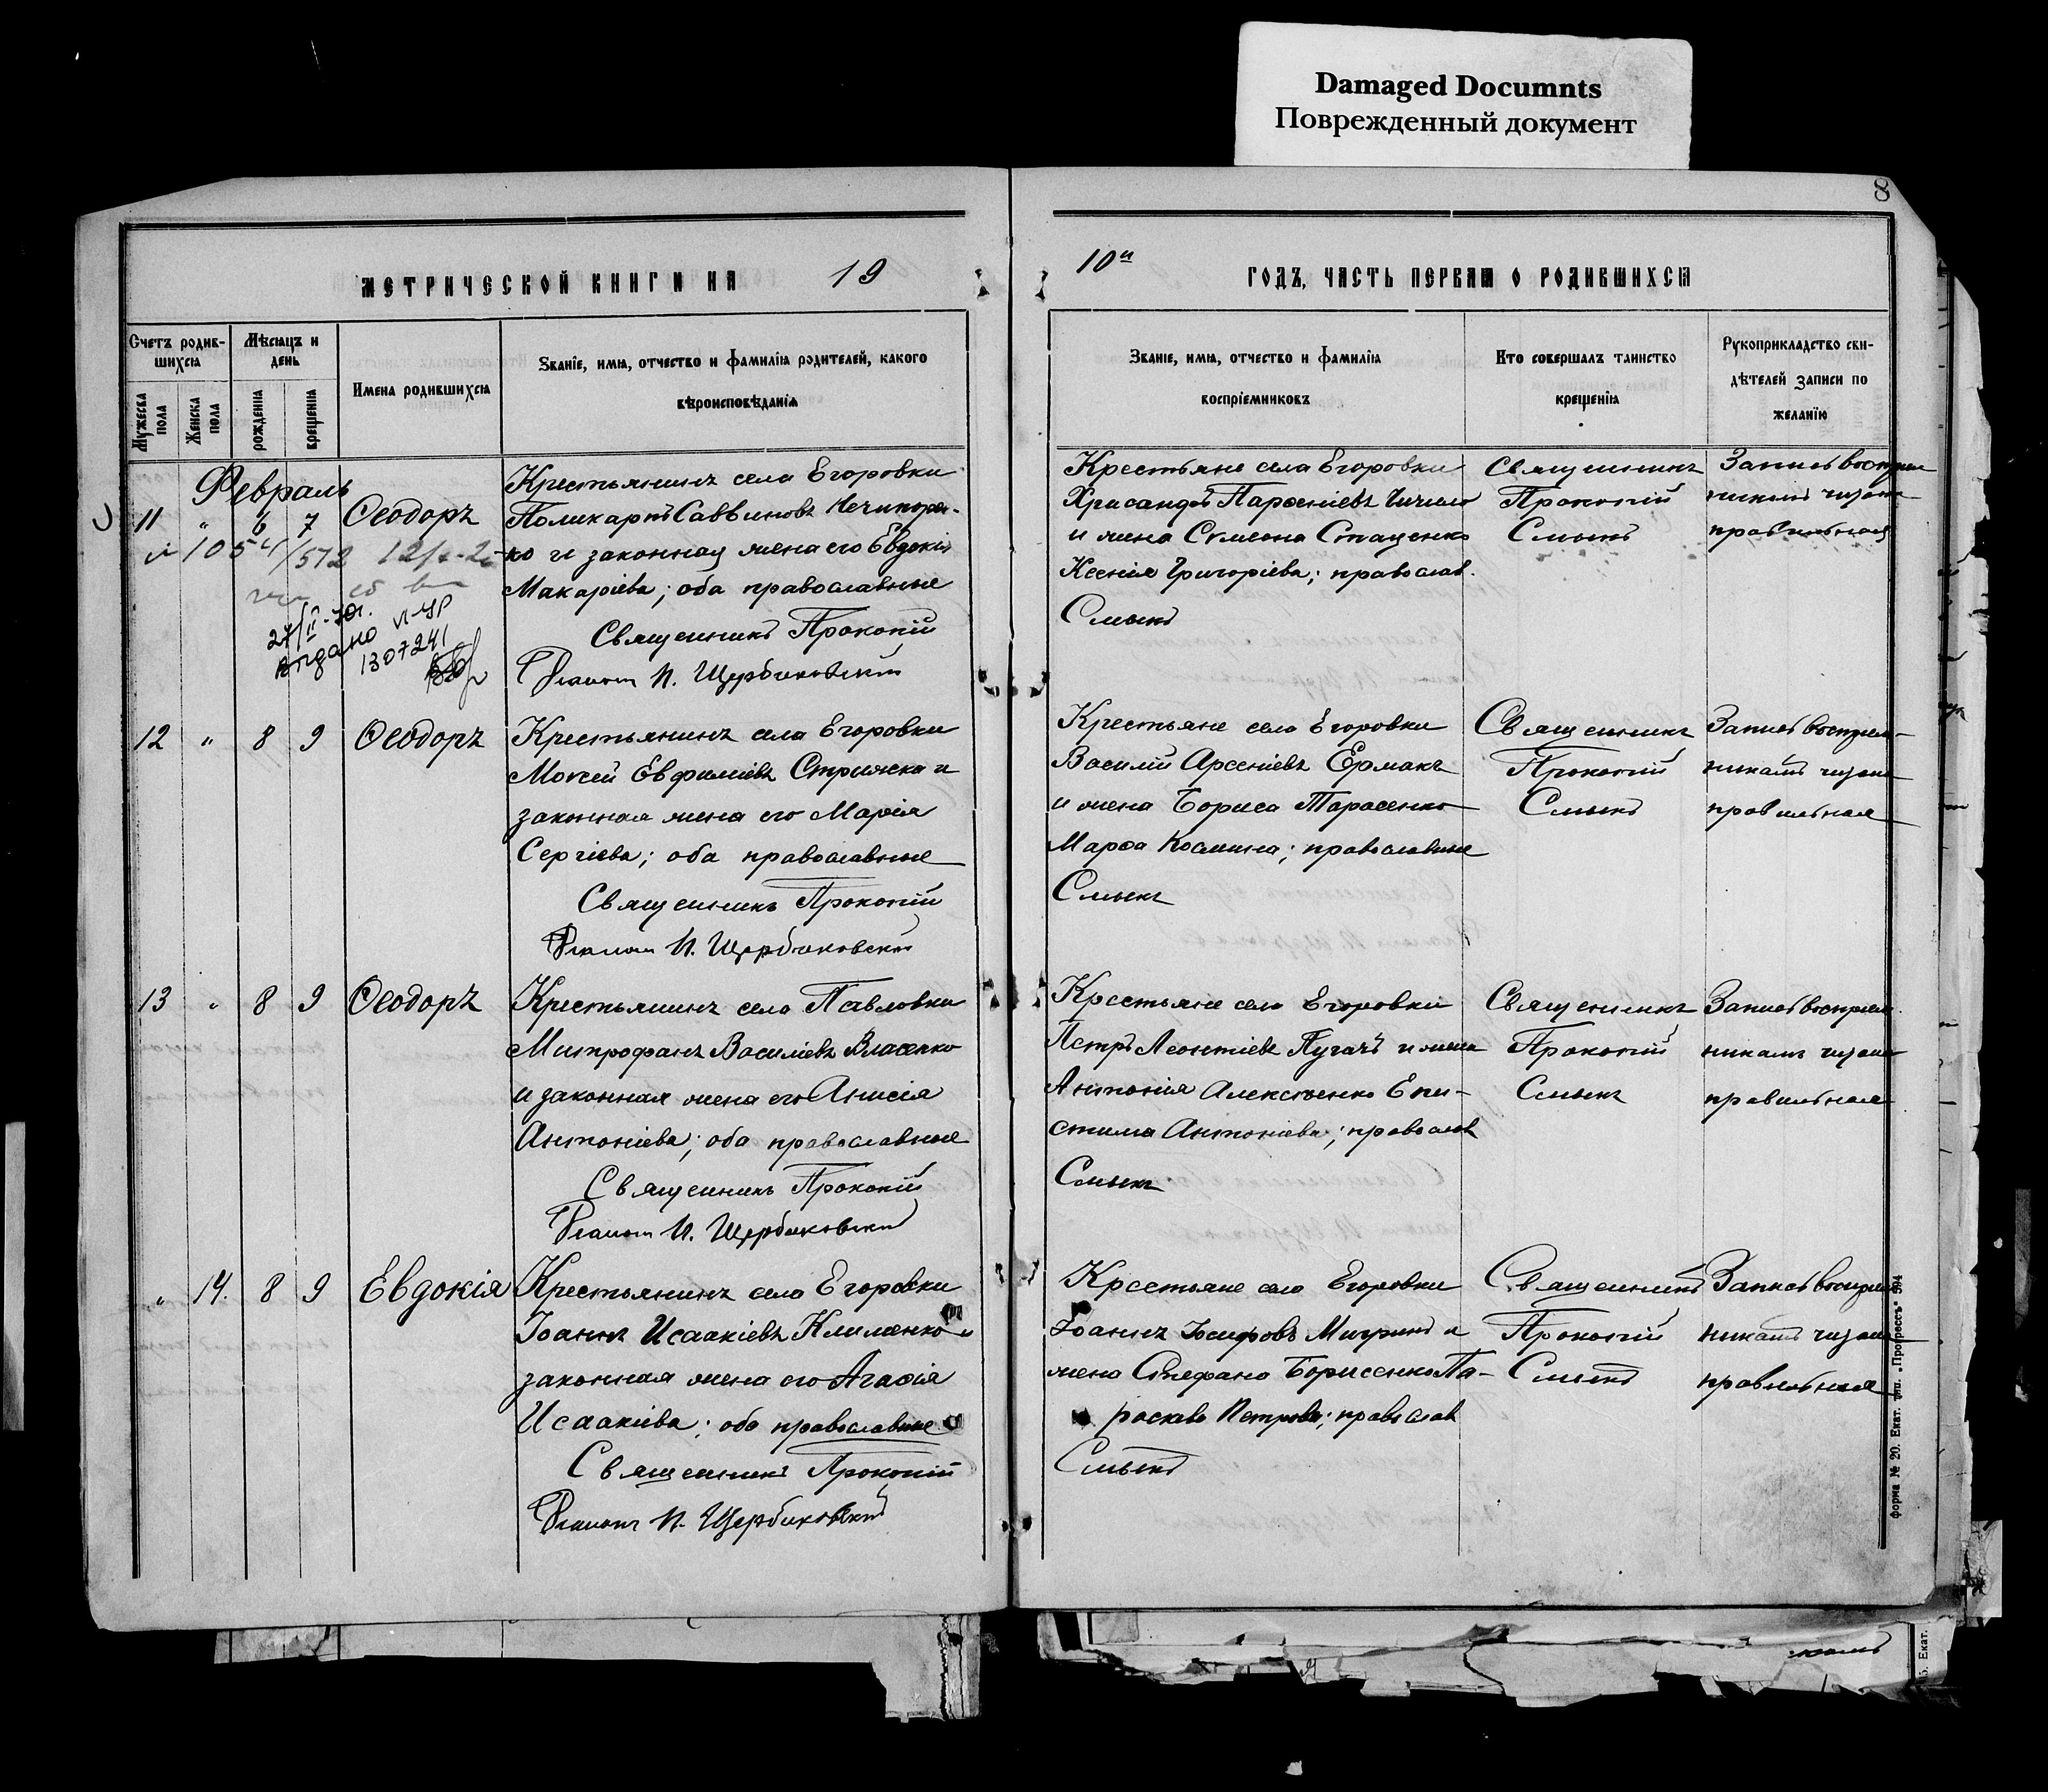 Damaged Documnts
Поврежденный документ
8
МЕТРИЧЕСКОЙ КНИГИ НА 19
10й ГОДЪ, ЧАСТЬ ПЕРВАЯ О РОДИВШИХСЯ
Счетъ родив-
шихся
Мужеска пола
Женска пола
Мѣсяцъ и день
рожденія
крещенія
Имена родившихся
Званіе, имя, отчество и фамилія родителей, какого
вѣроисповѣданія
Званіе, имя, отчество и фамилія
воспріемниковъ
Кто совершалъ таинство
крещенія
Рукоприкладство сви-
дѣтелей записи по
желанію
Февраль
11 " 6 7 Ѳеодоръ
1054/572
27/II-70г.
выдано
1307241
Крестьянинъ села Егоровки
Поликарпъ Саввиновъ Нечипорен-
ко и законная жена его Евдокія
Макаріева; оба православные
Священникъ Прокопій
Псаломщ И. Щербиковскій
Крестьяне села Егоровки
Хрисанфъ Парѳеніевъ
и жена Сѵмеона Стаценко
Ксенія Григоріева; православ.
Смыкъ
Священникъ
Прокопій
Смыкъ
Запись воспріем
никамъ читана
правильная
12 " 8 9 Ѳеодоръ
Крестьянинъ села Егоровки
Моѵсей Евфиміевъ Стрижека и
законная жена его Марія
Сергіева; оба православные
Священникъ Прокопій
Псаломщ И. Щербиковскій
Крестьяне села Егоровки
Василій Арсеніевъ Ермакъ
и жена Бориса Тарасенко
Марѳа Космина; православные
Смыкъ
Священникъ
Прокопій
Смыкъ
Запись воспріем-
никамъ читана
правильная
13 " 8 9 Ѳеодоръ
Крестьянинъ села Павловки
Митрофанъ Василіевъ Власенко
и законная жена его Анисія
Антоніева; оба православные
Священникъ Прокопій
Псаломщ И. Щербиковскій
Крестьяне села Егоровки
Петръ Леонтіевъ Пугачъ и жена
Антонія Алексѣенко Епи-
стима Антоніева; православ
Смыкъ
Священникъ
Прокопій
Смыкъ
Запись воспріем
никамъ читана
правильная
" 14. 8 9 Евдокія
Крестьянинъ села Егоровки
Іоаннъ Исаакіевъ Клименко и
законная жена его Агафія
Исаакіева; оба православные
Священникъ Прокопій
Псаломщ И. Щербиковскій
Крестьяне села Егоровки
Іоаннъ Іосифовъ и
жена Стефана Борисенко Па-
раскева Петрова; православ
Смыкъ
Священникъ
Прокопій
Смыкъ
Запись воспріем
никамъ читана
правильная
Форма № 20. Екат. тип. „Прогрессъ" 594